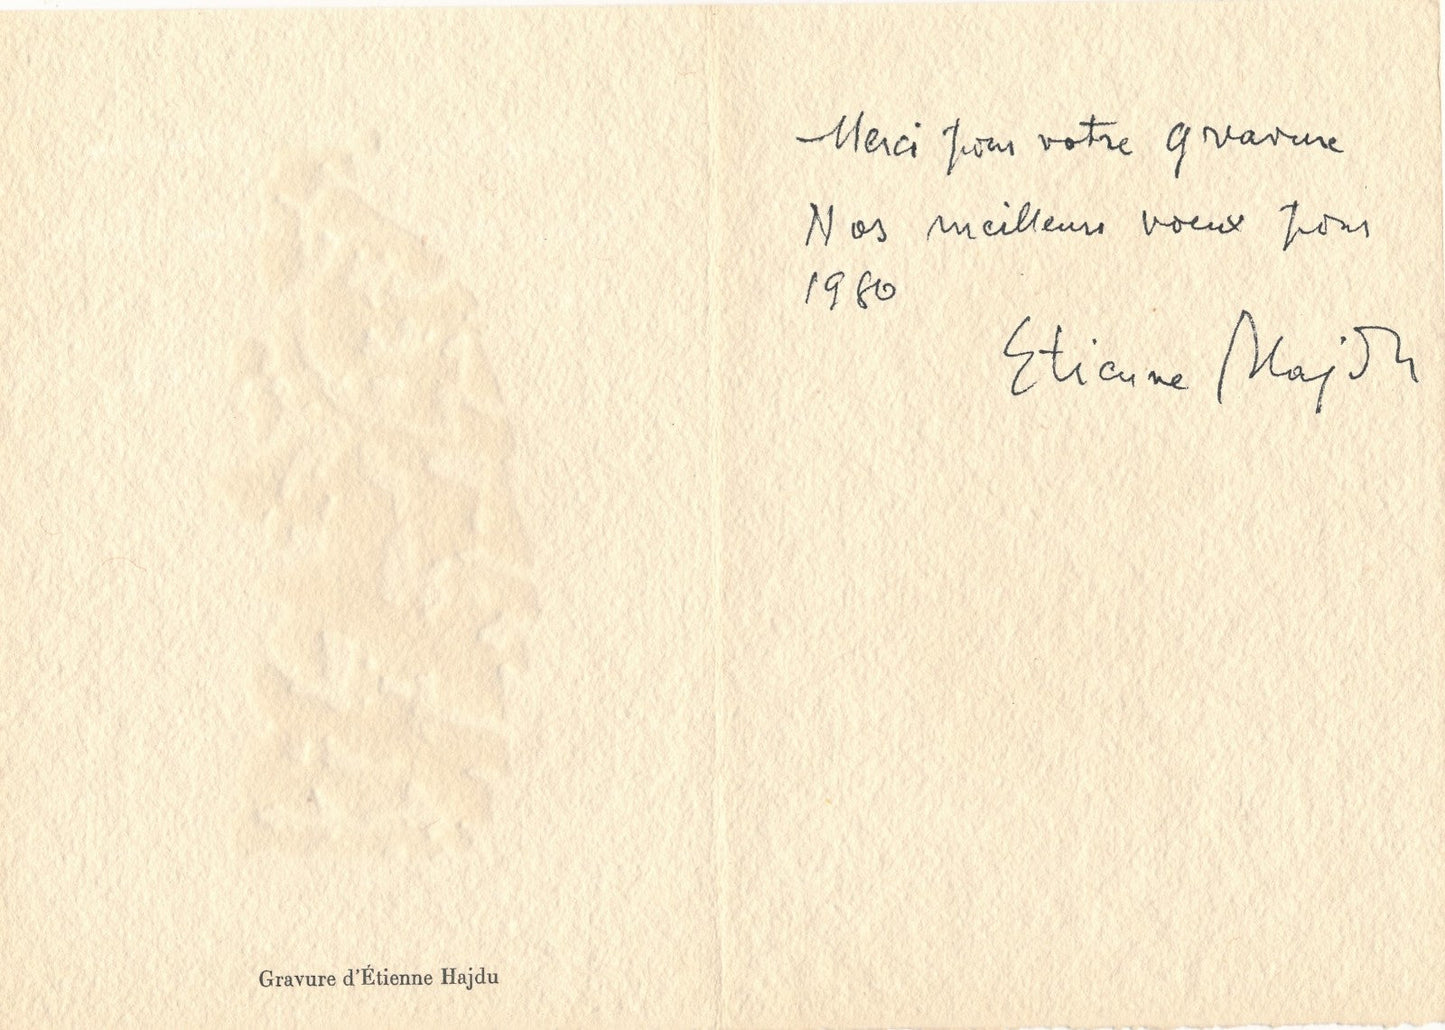 Gravure d'Étienne Hajdu
Merci pour votre gravure
Nos meilleurs voeux pour
1980
Etienne Hajdu